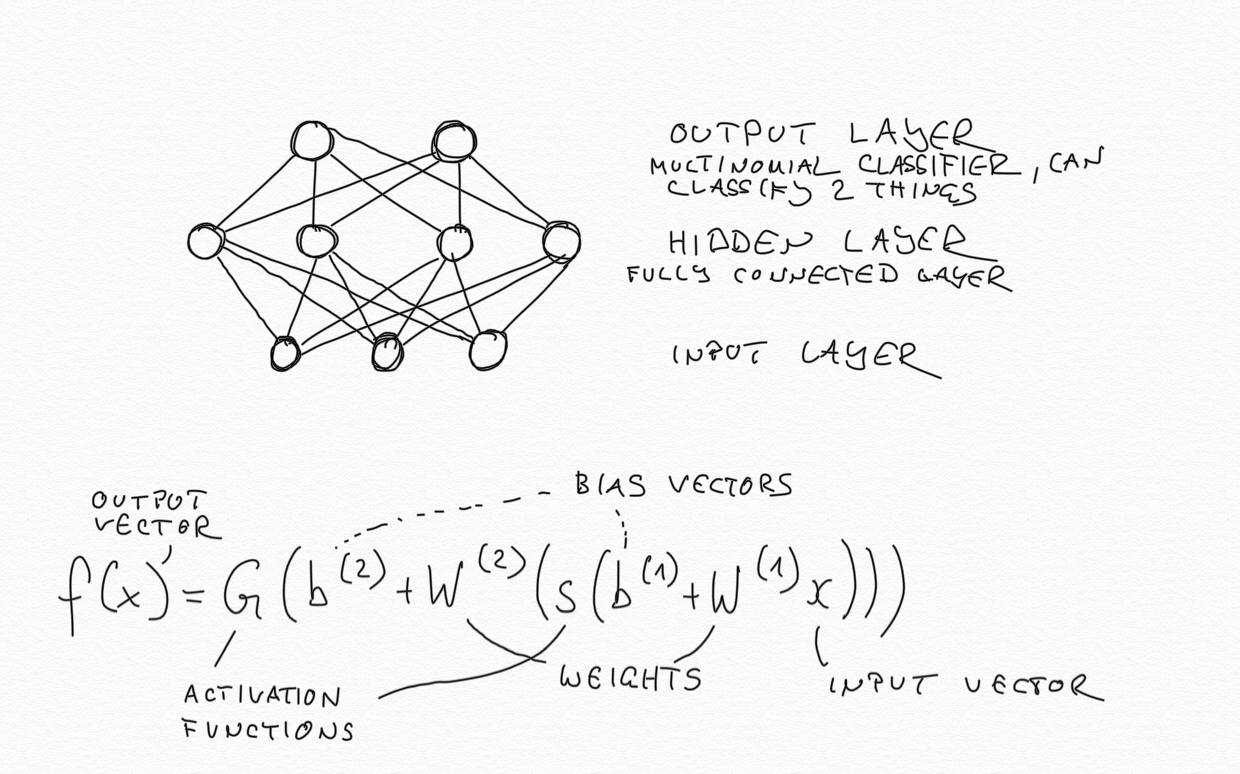 OUTPUT LAYER
MULTINOMIAL CLASSIFIER, CAN
CLASSIFY 2 THINGS
HIDDEN LAYER
FULLY CONNECTED LAYER
INPUT LAYER
BIAS VECTORS
OUTPUT
VECTOR
f(x) = G(b^(2) + W^(2)(s(b^(1) + W^(1)x)))
WEIGHTS
INPUT VECTOR
ACTIVATION
FUNCTIONS